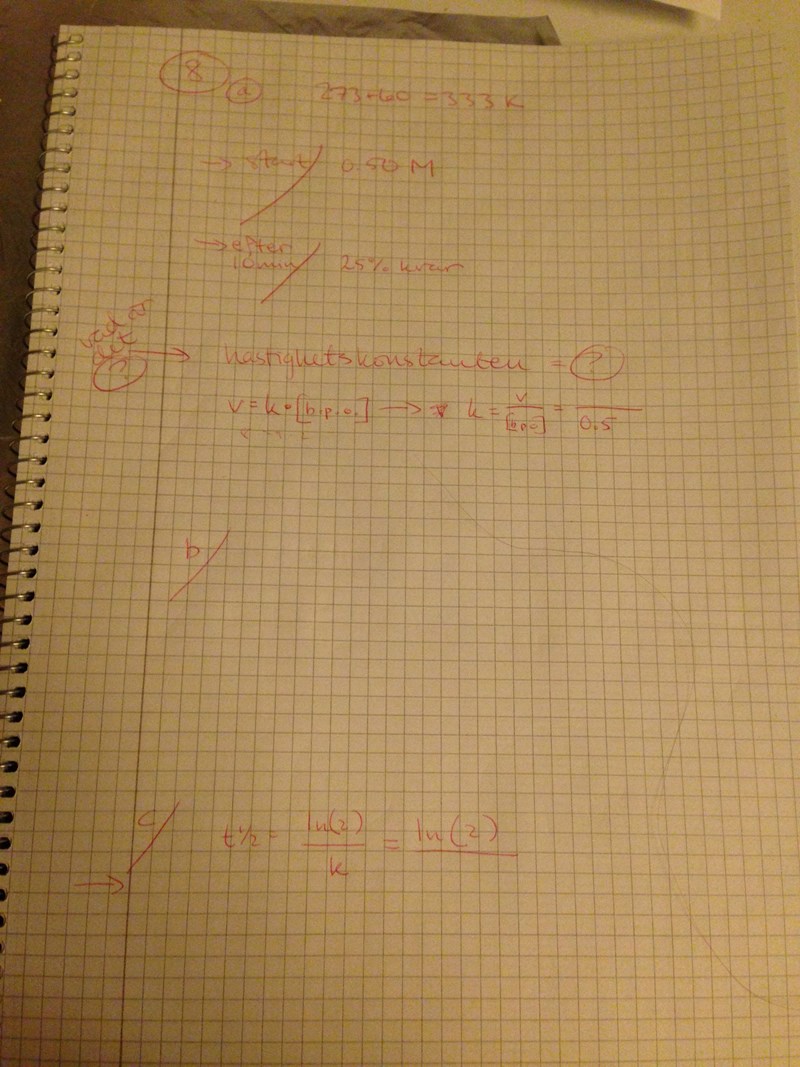 8 a 273+60 = 333 K
→ start/ 0.50 M
→ efter
10 min/ 25% kvar
vad är
det
? → hastighetskonstanten = ?
v = k • [b.p.o.] → k = v/[b.p.o] = /0.5
b/
c/ t½ = ln(2)/k = ln(2)/
→